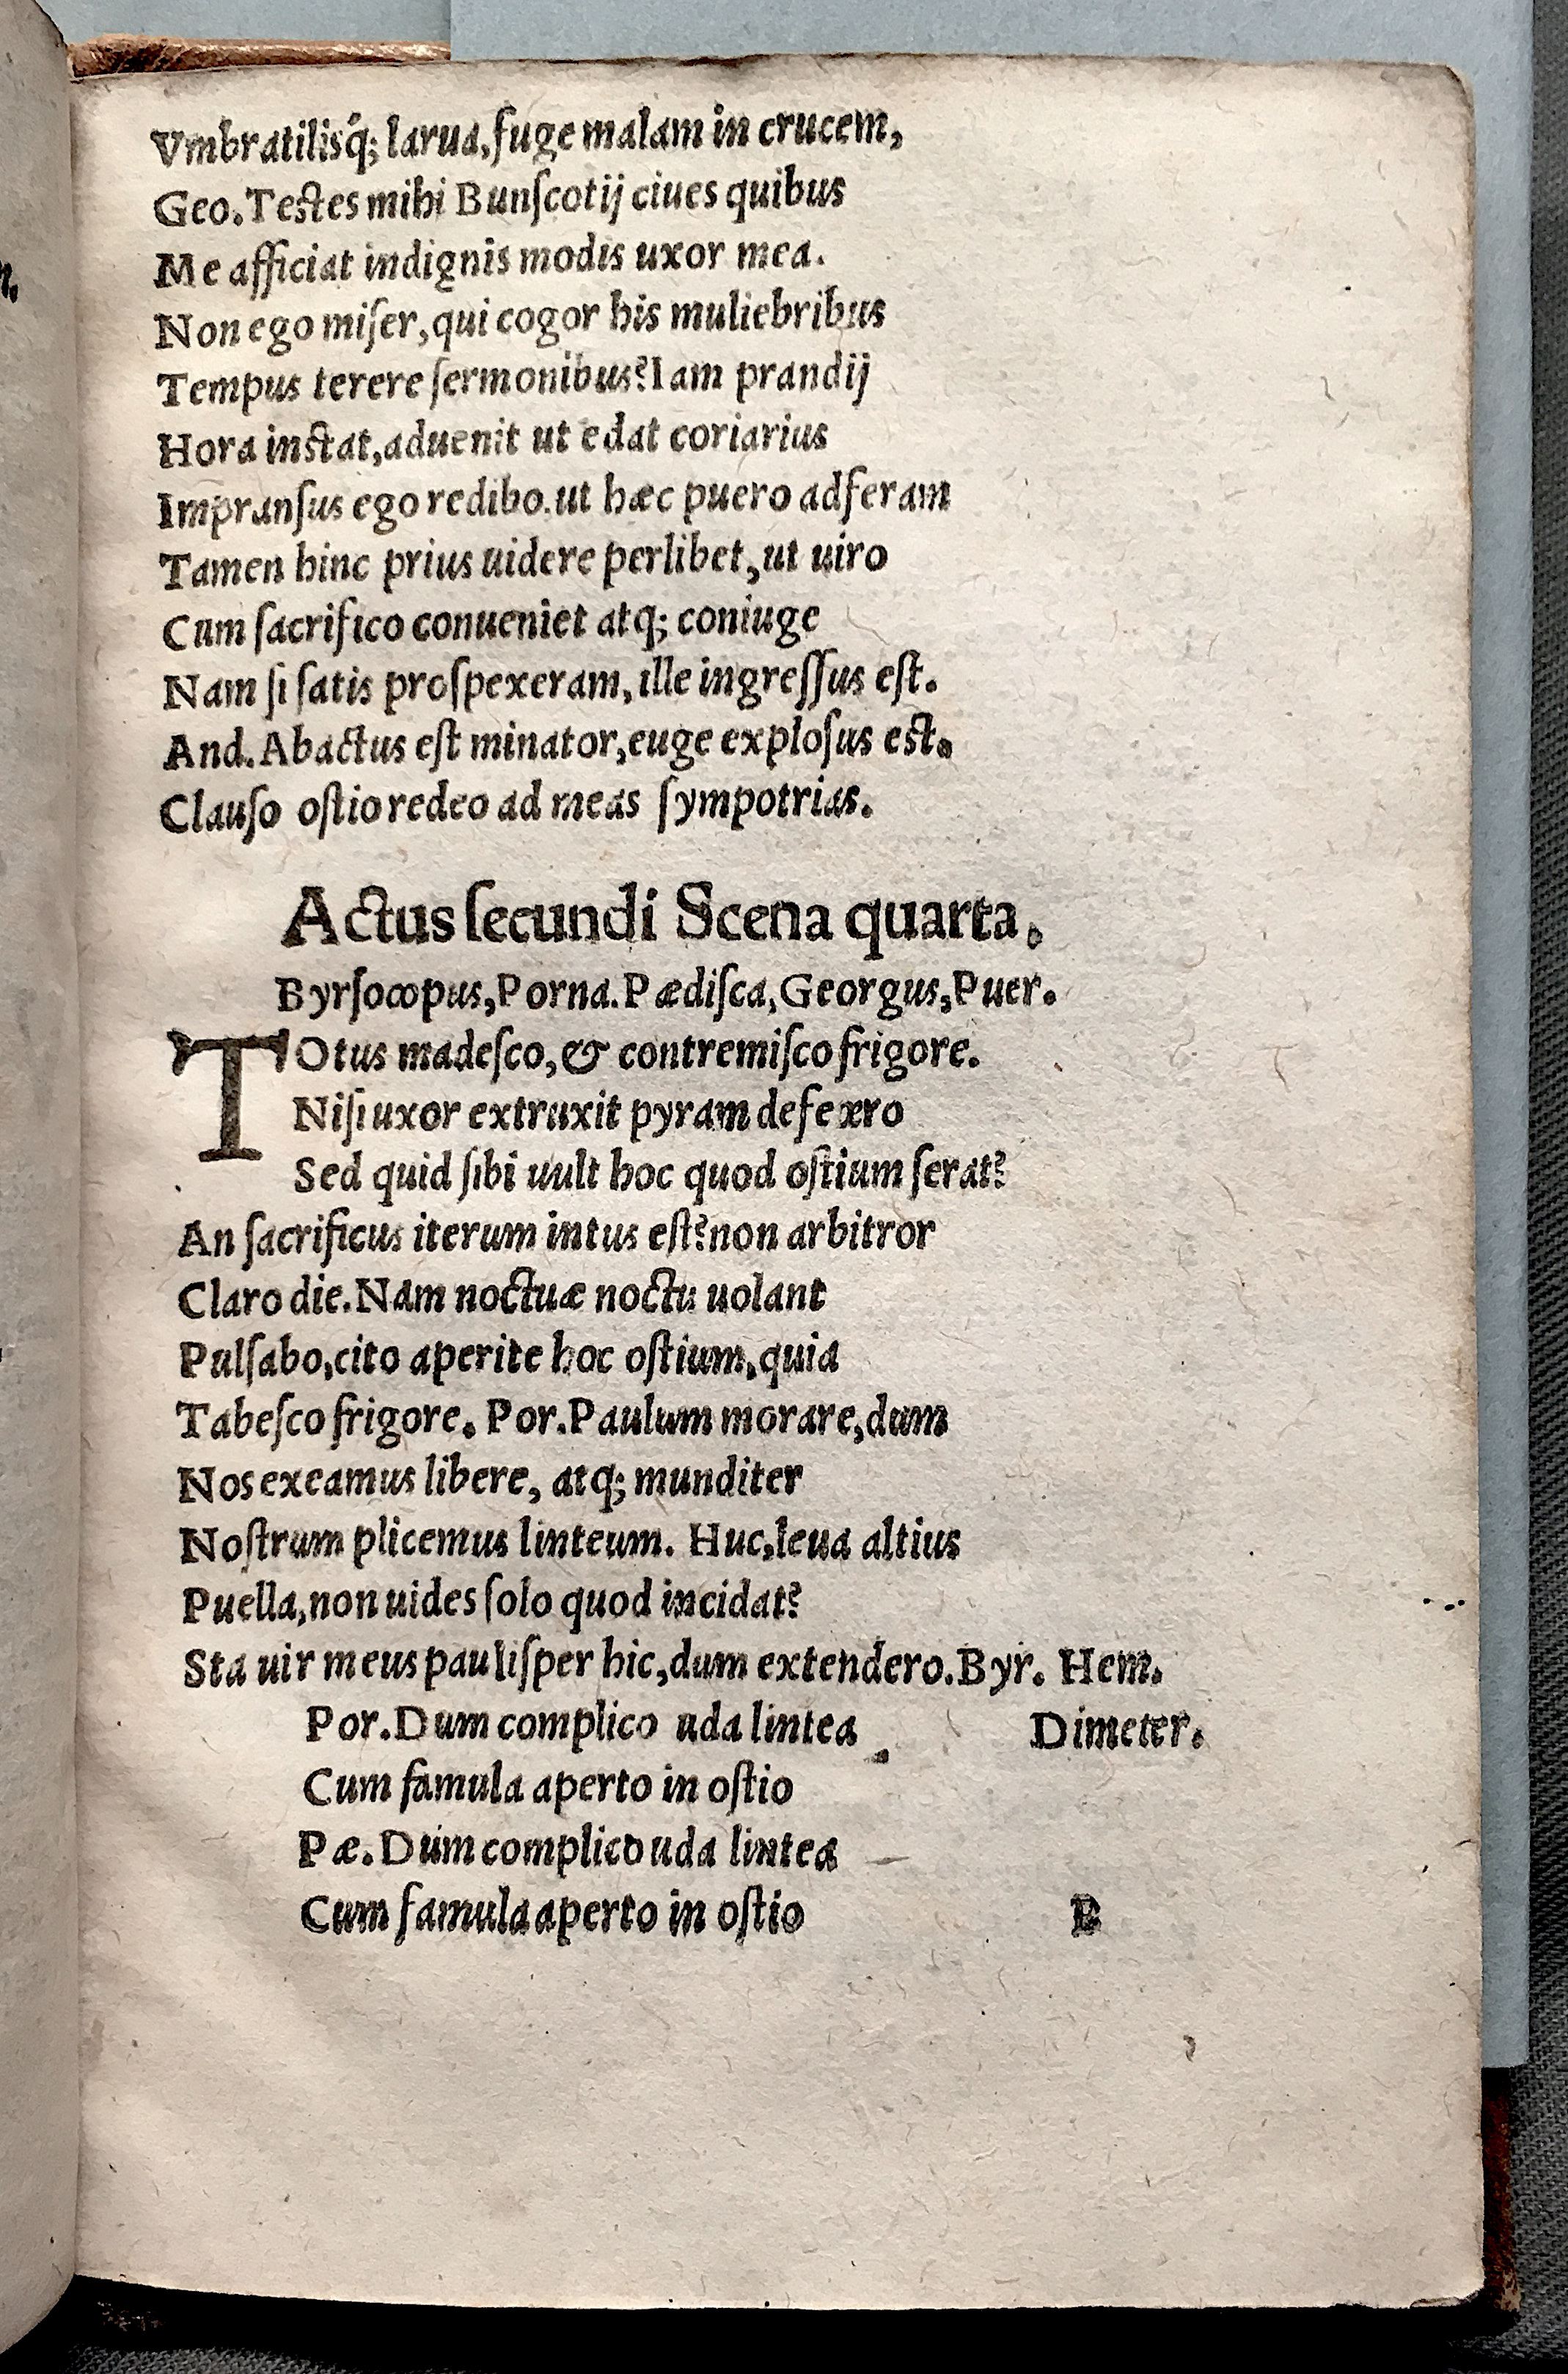 Vmbratilisq́; larua, fuge malam in crucem,
Geo. Testes mihi Bunſcotij ciues quibus
Me afficiat indignis modis uxor mea.
Non ego miſer, qui cogor his muliebribus
Tempus terere ſermonibus? Iam prandij
Hora instat, aduenit ut edat coriarius
Impranſus ego redibo. ut hæc puero adferam
Tamen hinc prius uidere perlibet, ut uiro
Cum ſacrifico conueniet atq; coniuge
Nam ſi ſatis proſpexeram, ille ingreſſus eſt.
And. Abactus eſt minator, euge exploſus est.
Clauſo oſtio redeo ad meas ſympotrias.
Actus ſecundi Scena quarta.
Byrſocopus, Porna. Pædiſca, Georgus, Puer.
TOtus madeſco, & contremiſco frigore.
Niſi uxor extruxit pyram defexro
Sed quid ſibi uult hoc quod oſtium ſerat?
An ſacrificus iterum intus eſt? non arbitror
Claro die. Nam noctuæ noctu uolant
Pulſabo, cito aperite hoc oſtium, quia
Tabeſco frigore. Por. Paulum morare, dum
Nos exeamus libere, atq; munditer
Noſtrum plicemus linteum. Huc, leua altius
Puella, non uides ſolo quod incidat?
Sta uir meus pauliſper hic, dum extendero. Byr. Hem.
Por. Dum complico uda lintea Dimeter.
Cum famula aperto in oſtio
Pæ. Dum complico uda lintea
Cum famula aperto in oſtio B